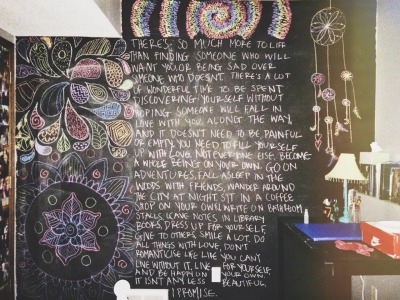 THERE'S SO MUCH MORE TO LIFE
THAN FINDING SOMEONE WHO WILL
WANT YOU, OR BEING SAD OVER
SOMEONE WHO DOESN'T. THERE'S A LOT
OF WONDERFUL TIME TO BE SPENT
DISCOVERING YOURSELF WITHOUT
HOPING SOMEONE WILL FALL IN
LOVE WITH YOU ALONG THE WAY,
AND IT DOESN'T NEED TO BE PAINFUL
OR EMPTY. YOU NEED TO FILL YOURSELF
UP WITH LOVE. NOT EVERYONE ELSE. BECOME
A WHOLE BEING ON YOUR OWN. GO ON
ADVENTURES, FALL ASLEEP IN THE
WOODS WITH FRIENDS, WANDER AROUND
THE CITY AT NIGHT, SIT IN A COFFEE
SHOP ON YOUR OWN, WRITE ON BATHROOM
STALLS, LEAVE NOTES IN LIBRARY
BOOKS, DRESS UP FOR YOURSELF,
GIVE TO OTHERS, SMILE A LOT. DO
ALL THINGS WITH LOVE, DON'T
ROMANTICISE LIFE LIKE YOU CAN'T
LIVE WITHOUT IT. LIVE FOR YOURSELF
AND BE HAPPY ON YOUR OWN.
IT ISN'T ANY LESS BEAUTIFUL,
I PROMISE.